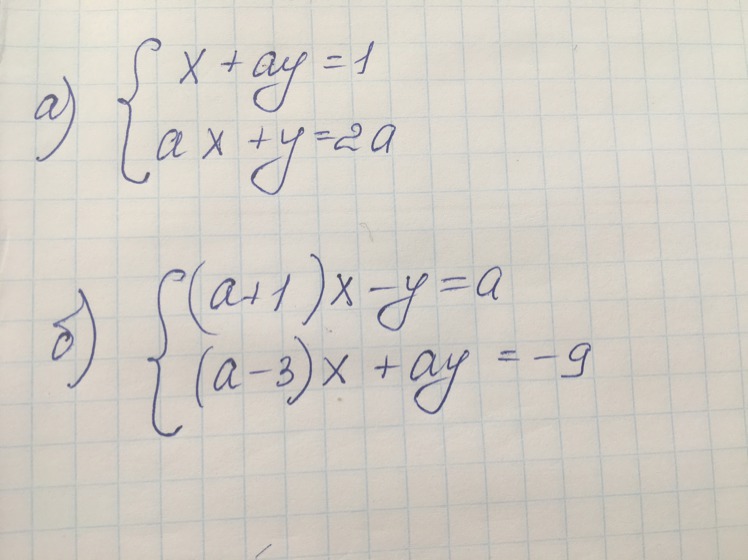 а) { x + ay = 1
ax + y = 2a
б) { (a+1)x - y = a
(a-3)x + ay = -9